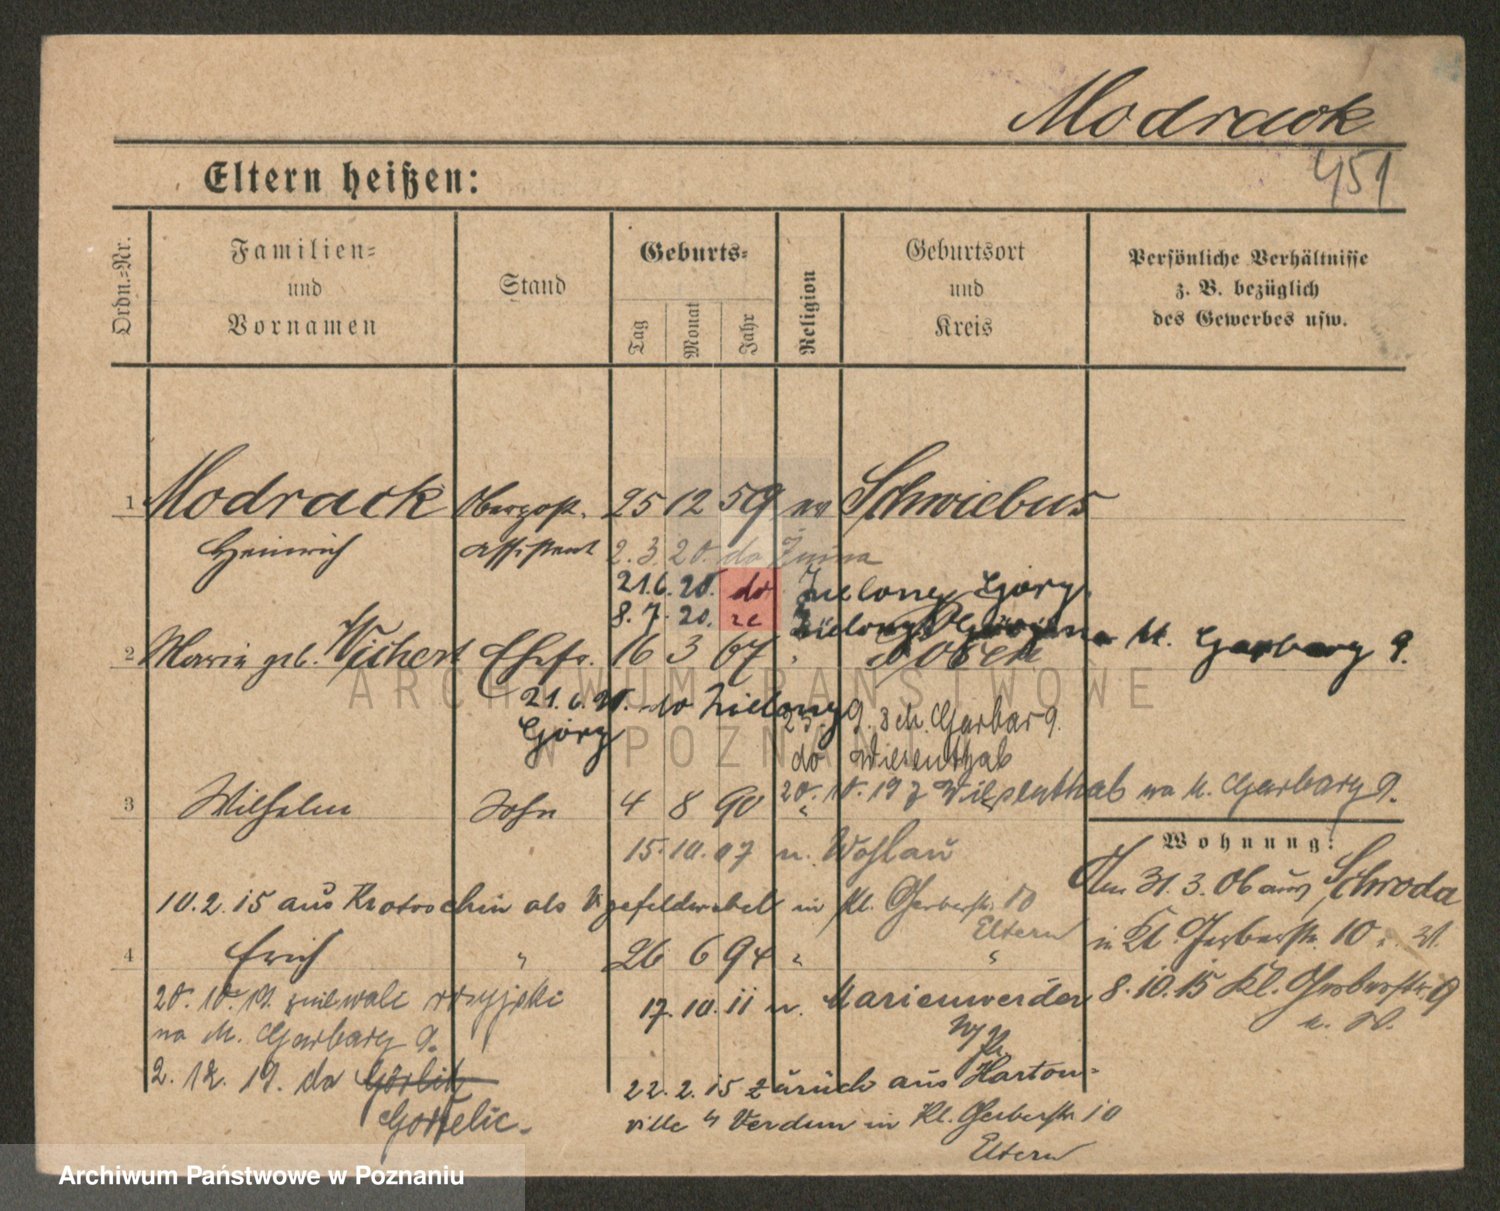 Modrack
451
Eltern heißen:
Ordn.-Nr.
Familien- und Vornamen
Stand
Geburts-
Tag
Monat
Jahr
Religion
Geburtsort und Kreis
Persönliche Verhältnisse z. B. bezüglich des Gewerbes usw.
1 Modrack Oberpost. 25 12 59 ev Schwiebus
Heinrich Assistent 2. 3. 20. do Żnina
21. 6. 20. do Zielonej Góry
8. 7. 20. ze Zielonej Góry na M. Garbary 9.
2 Maria geb. Wichert Ehefr. 16 3 67 " Posen
21. 6. 20. do Zielony Góry
25. 9. M. Garbar 9.
do Wiesenthal
3 Wilhelm Sohn 4 8 90 "
20. 10. 19 z Wiesenthal na M. Garbary 9.
15. 10. 07 n. Wohlau
Wohnung:
Am 31. 3. 06 aus Schroda
in Kl. Gerberstr. 10
8. 10. 15 Kl. Gerberstr. 9
10. 2. 15 aus Krotoschin als Vizefeldwebel in Kl. Gerberstr. 10
Eltern
4 Erich " 26 6 94 " "
20. 10. 19.
na M. Garbary 9.
17. 10. 11 n. Marienwerder
W/Pr
2. 12. 19. do Görlitz
Gorrelic.
22. 2. 15 zurück aus Harton-
ville b/ Verdun in Kl. Gerberstr. 10
Eltern
ARCHIWUM PAŃSTWOWE
W POZNANIU
Archiwum Państwowe w Poznaniu